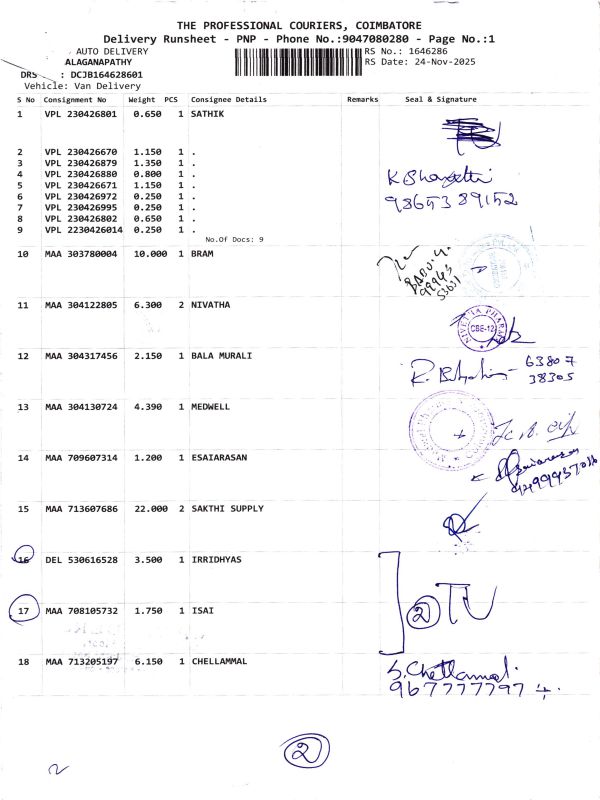 THE PROFESSIONAL COURIERS, COIMBATORE
Delivery Runsheet - PNP - Phone No.:9047080280 - Page No.:1
AUTO DELIVERY
ALAGANAPATHY
DRS : DCJB164628601
Vehicle: Van Delivery
RS No.: 1646286
RS Date: 24-Nov-2025
S No Consignment No Weight PCS Consignee Details Remarks Seal & Signature
1 VPL 230426801 0.650 1 SATHIK
2 VPL 230426670 1.150 1 .
3 VPL 230426879 1.350 1 .
4 VPL 230426880 0.800 1 .
5 VPL 230426671 1.150 1 .
6 VPL 230426972 0.250 1 .
7 VPL 230426995 0.250 1 .
8 VPL 230426802 0.650 1 .
9 VPL 2230426014 0.250 1 .
98653 89152
No.Of Docs: 9
10 MAA 303780004 10.000 1 BRAM
BABU
11 MAA 304122805 6.300 2 NIVATHA
CBE-12
12 MAA 304317456 2.150 1 BALA MURALI
63807
38305
13 MAA 304130724 4.390 1 MEDWELL
14 MAA 709607314 1.200 1 ESAIARASAN
15 MAA 713607686 22.000 2 SAKTHI SUPPLY
16 DEL 530616528 3.500 1 IRRIDHYAS
17 MAA 708105732 1.750 1 ISAI
2
18 MAA 713205197 6.150 1 CHELLAMMAL
S. Chellammal
967777797
2